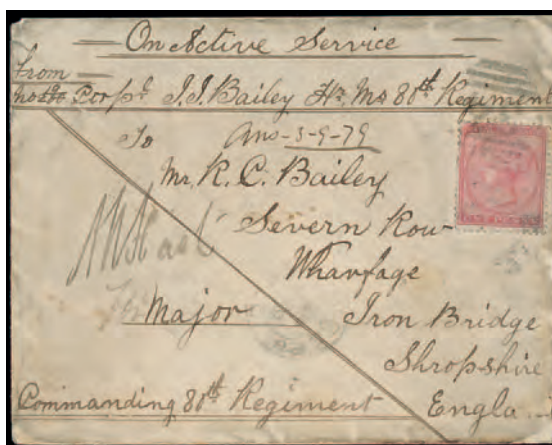 On Active Service
From
Corpl J.J. Bailey Hr Ms 80th Regiment
To Ans-3-9-79
Mr R. C. Bailey
Severn Row
Wharfage
Major Iron Bridge
Shropshire
Commanding 80th Regiment Engla